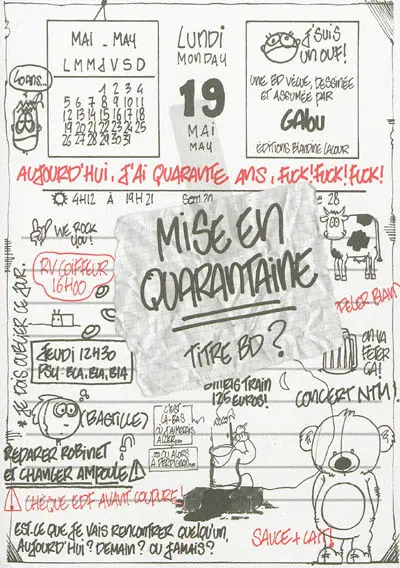 MAI - MAY
L M M J V S D
1 2 3 4
5 6 7 8 9 10 11
12 13 14 15 16 17 18
19 20 21 22 23 24 25
26 27 28 29 30 31
LUNDI
MONDAY
19
MAI
MAY
J'SUIS
UN OUF!
UNE BD VÉCUE, DESSINÉE
ET ASSUMÉE PAR
GALOU
ÉDITIONS BLANDINE LACOUR
40 ANS...
AUJOURD'HUI, J'AI QUARANTE ANS, FUCK! FUCK! FUCK!
4H12 À 19H21
28
WE ROCK
YOU!
MISE EN
QUARANTAINE
TITRE BD?
RV COIFFEUR
16H00
PELER BLAN
JEUDI 12H30
PSY: BLA, BLA, BLA
ON VA
FÊTER
ÇA!
BILLETS TRAIN
125 EUROS!
CONCERT NTM!
* JE DOIS ACHEVER CE JOUR.
(BASTILLE)
C'EST
LÀ-BAS
OÙ J'AIMERAIS
ALLER...
OU ALORS
À PERPIGNAN...
RÉPARER ROBINET
ET CHANGER AMPOULE
CHÈQUE EDF AVANT COUPURE!
EST-CE QUE JE VAIS RENCONTRER QUELQU'UN,
AUJOURD'HUI? DEMAIN? OU JAMAIS?
SAUCE + LAIT!